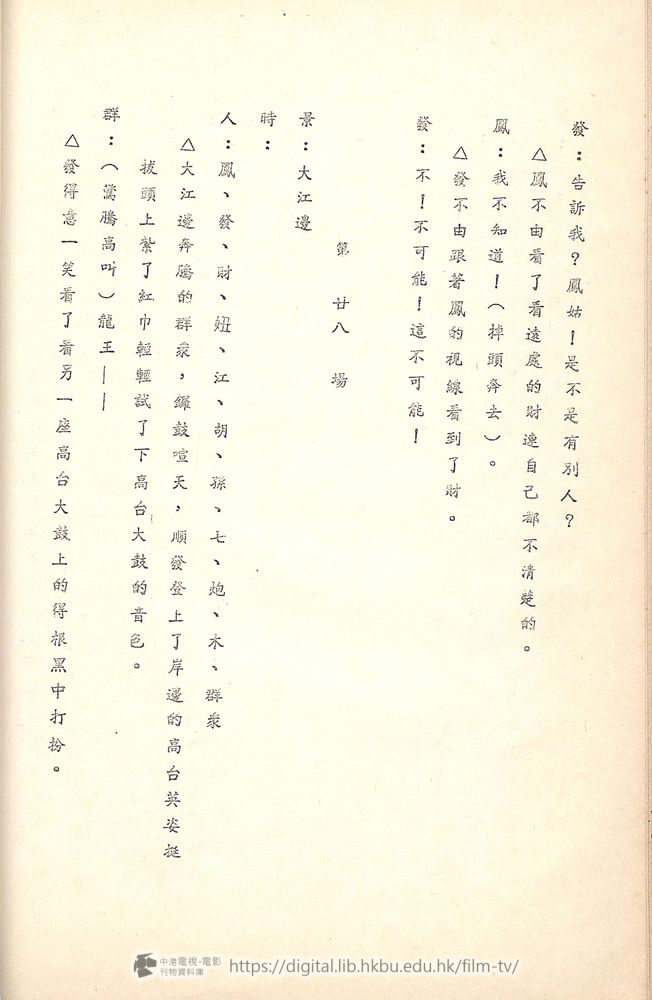 發：告訴我？鳳姑！是不是有別人？
△鳳不由看了看遠處的財連自己都不清楚的。
鳳：我不知道！（掉頭奔去）。
△發不由跟著鳳的視線看到了財。
發：不！不可能！這不可能！
第廿八場
景：大江邊
時：
人：鳳、發、財、妞、江、胡、孫、七、炮、木、群衆
△大江邊奔騰的群衆，鑼鼓喧天，順發登上了岸邊的高台英姿挺
拔頭上紮了紅巾輕輕試了下高台大鼓的音色。
群：（驚騰高叫）龍王——
△發得意一笑看了看另一座高台大鼓上的得根黑巾打扮。
中港電視·電影
刊物資料庫
https://digital.lib.hkbu.edu.hk/film-tv/